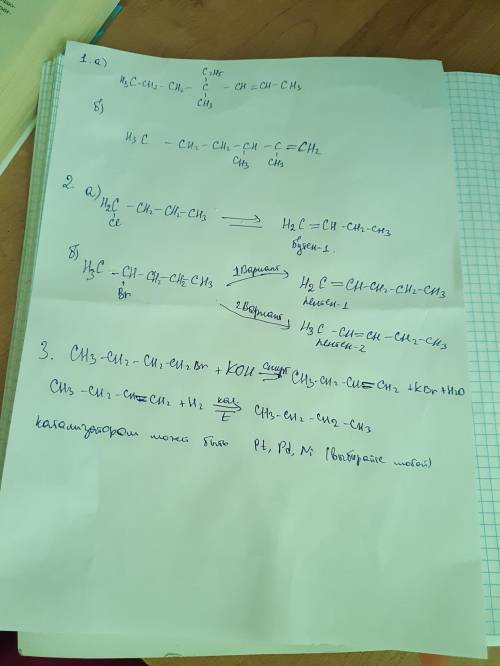 1. а)
C2H5
H3C-CH2-CH2-C-CH=CH-CH3
CH3
б)
H3C-CH2-CH2-CH-C=CH2
CH3 CH3
2. а)
H2C-CH2-CH2-CH3 → H2C=CH-CH2-CH3
Cl бутен-1.
б)
H3C-CH-CH2-CH2-CH3 1 Вариант H2C=CH-CH2-CH2-CH3
Br пентен-1
2 Вариант H3C-CH=CH-CH2-CH3
пентен-2
3. CH3-CH2-CH2-CH2Br + KOH спирт → CH3-CH2-CH=CH2 + KBr + H2O
CH3-CH2-CH=CH2 + H2 кат. t → CH3-CH2-CH2-CH3
катализатором может быть Pt, Pd, Ni (выбирайте любой)